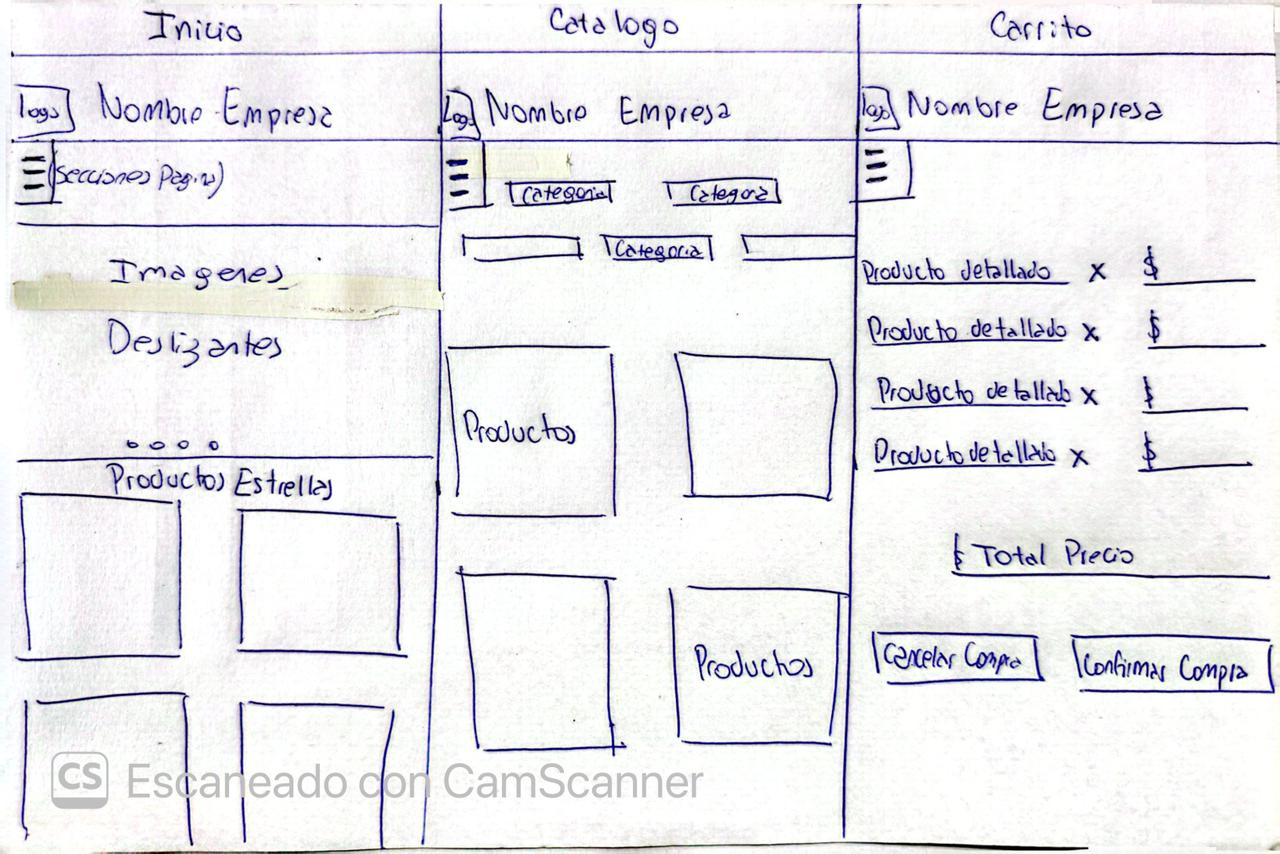 Inicio
logo Nombre Empresa
(Secciones Pagina)
Imagenes
Deslizantes
Productos Estrellas
Catálogo
Logo Nombre Empresa
Categoria Categoria
Categoria
Productos
Productos
Carrito
logo Nombre Empresa
Producto detallado x $
Producto detallado x $
Producto detallado x $
Producto detallado x $
$ Total Precio
Cancelar Compra Confirmar Compra
CS Escaneado con CamScanner